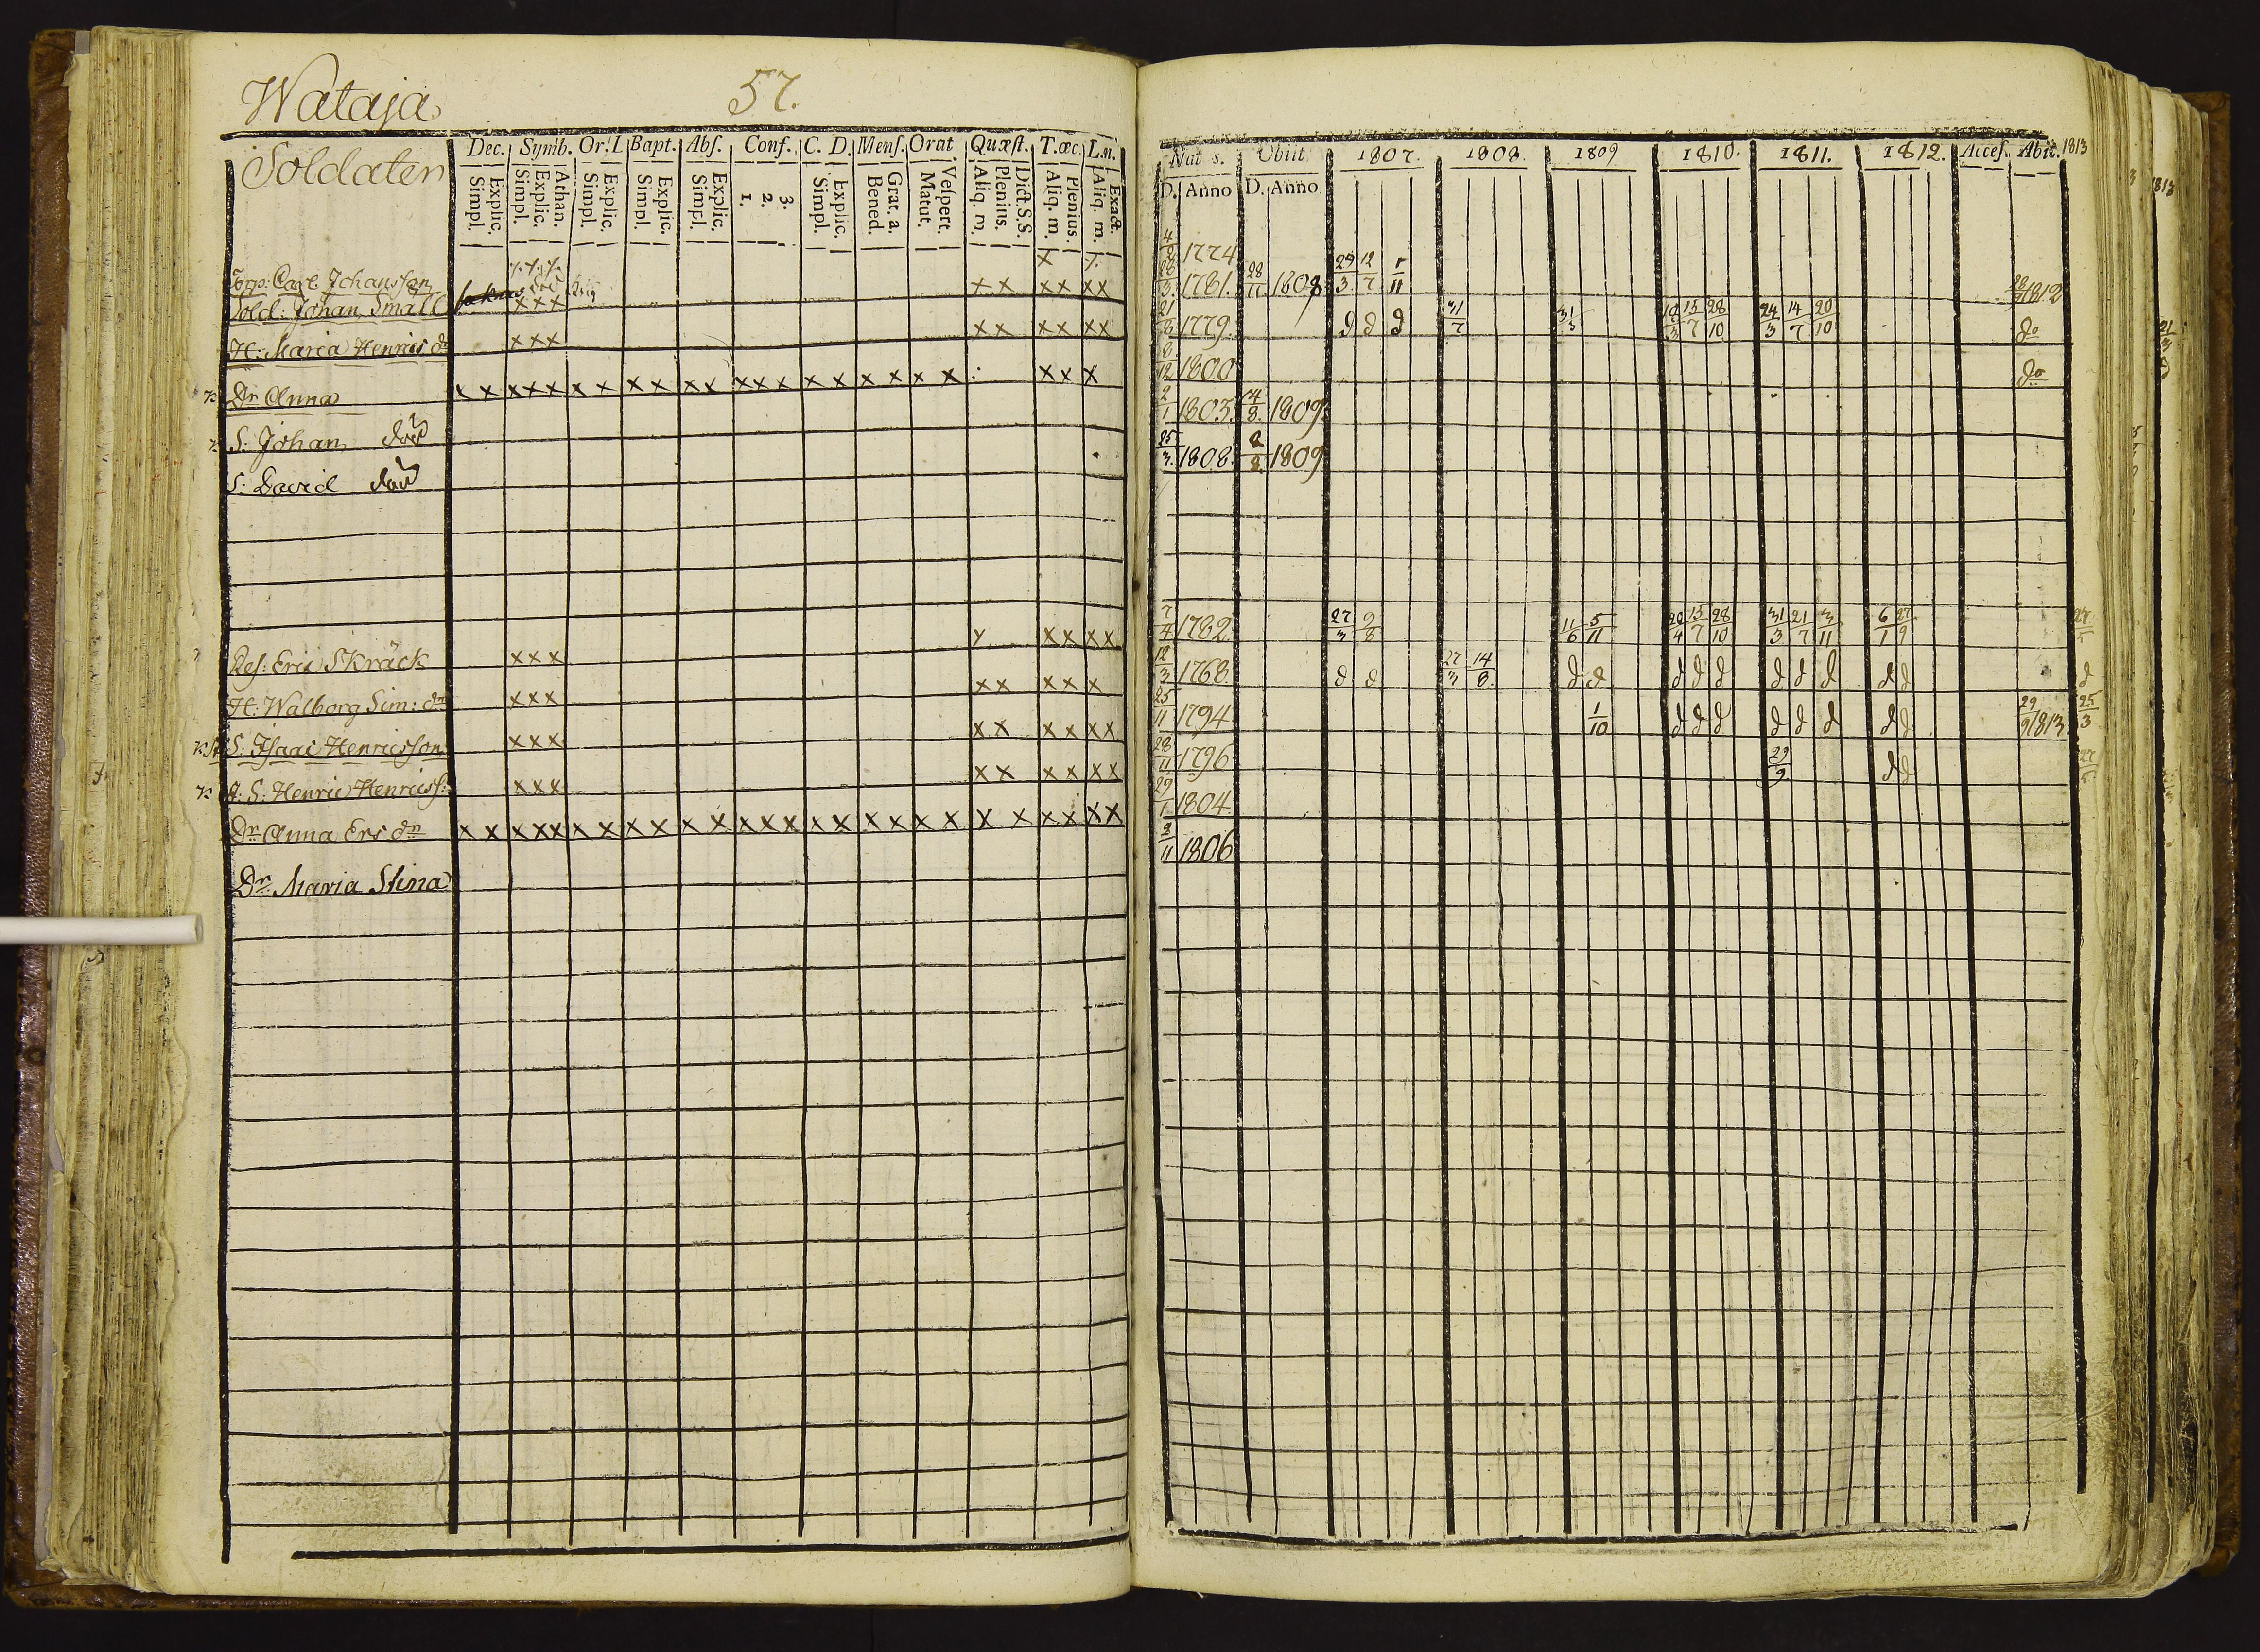 Wataja
57.
Soldater
Dec. Symb. Or. L Bapt. Abſ. Conf. C. D. Menſ. Orat Quæſt. T. œc. L. m.
Explic. Simpl. Athan. Explic. Simpl. Explic. Simpl. Explic. Simpl. Explic. Simpl. 3. 2. 1. Explic. Simpl. Grat. a. Bened. Veſpert. Matut. Dict. S.S. Plenius. Aliq. m. Plenius. Aliq. m. Exact. Aliq. m.
Carl Johansson
Sold: Johan Småll x x x x x x x x x
H: Maria Henrics dr x x x x x x x x x
Dr Anna x x x x x x x x x x x x x x x x x x x x x x x x
S: Johan död
S: David död
Res: Eric Skräck x x x x x x x x
H: Walborg Sim: dr x x x x x x x x
S: Isaac Henricsson x x x x x x x x x
S: Henric Henricss: x x x x x x x x x
Dr Anna Ers dr x x x x x x x x x x x x x x x x x x x x x x x x x x
Dr Maria Stina
Nat s. Obiit 1807. 1808. 1809 1810. 1811. 1812. Acceſ. Abit. 1813
D. Anno D. Anno
1774
1781. 28/11 1808 29/3 12/7 1/11 1812
21/8 1779. d d d 31/7 31/3 18/3 15/7 28/10 24/3 14/7 20/10 do
8/12 1800 do
2/1 1803. 14/8. 1809.
25/3. 1808. 2/8 1809
7/4 1782 27/3 9/8 11/6 5/11 20/4 15/7 28/10 31/3 21/7 3/11 6/1 27/9
12/3 1768. d d 27/3 14/8. d d d d d d d d d d d
25/11 1794 1/10 d d d d d d d d 29/9 1813 25/3
28/11 1796 29/9 d d
29/1 1804.
2/11 1806